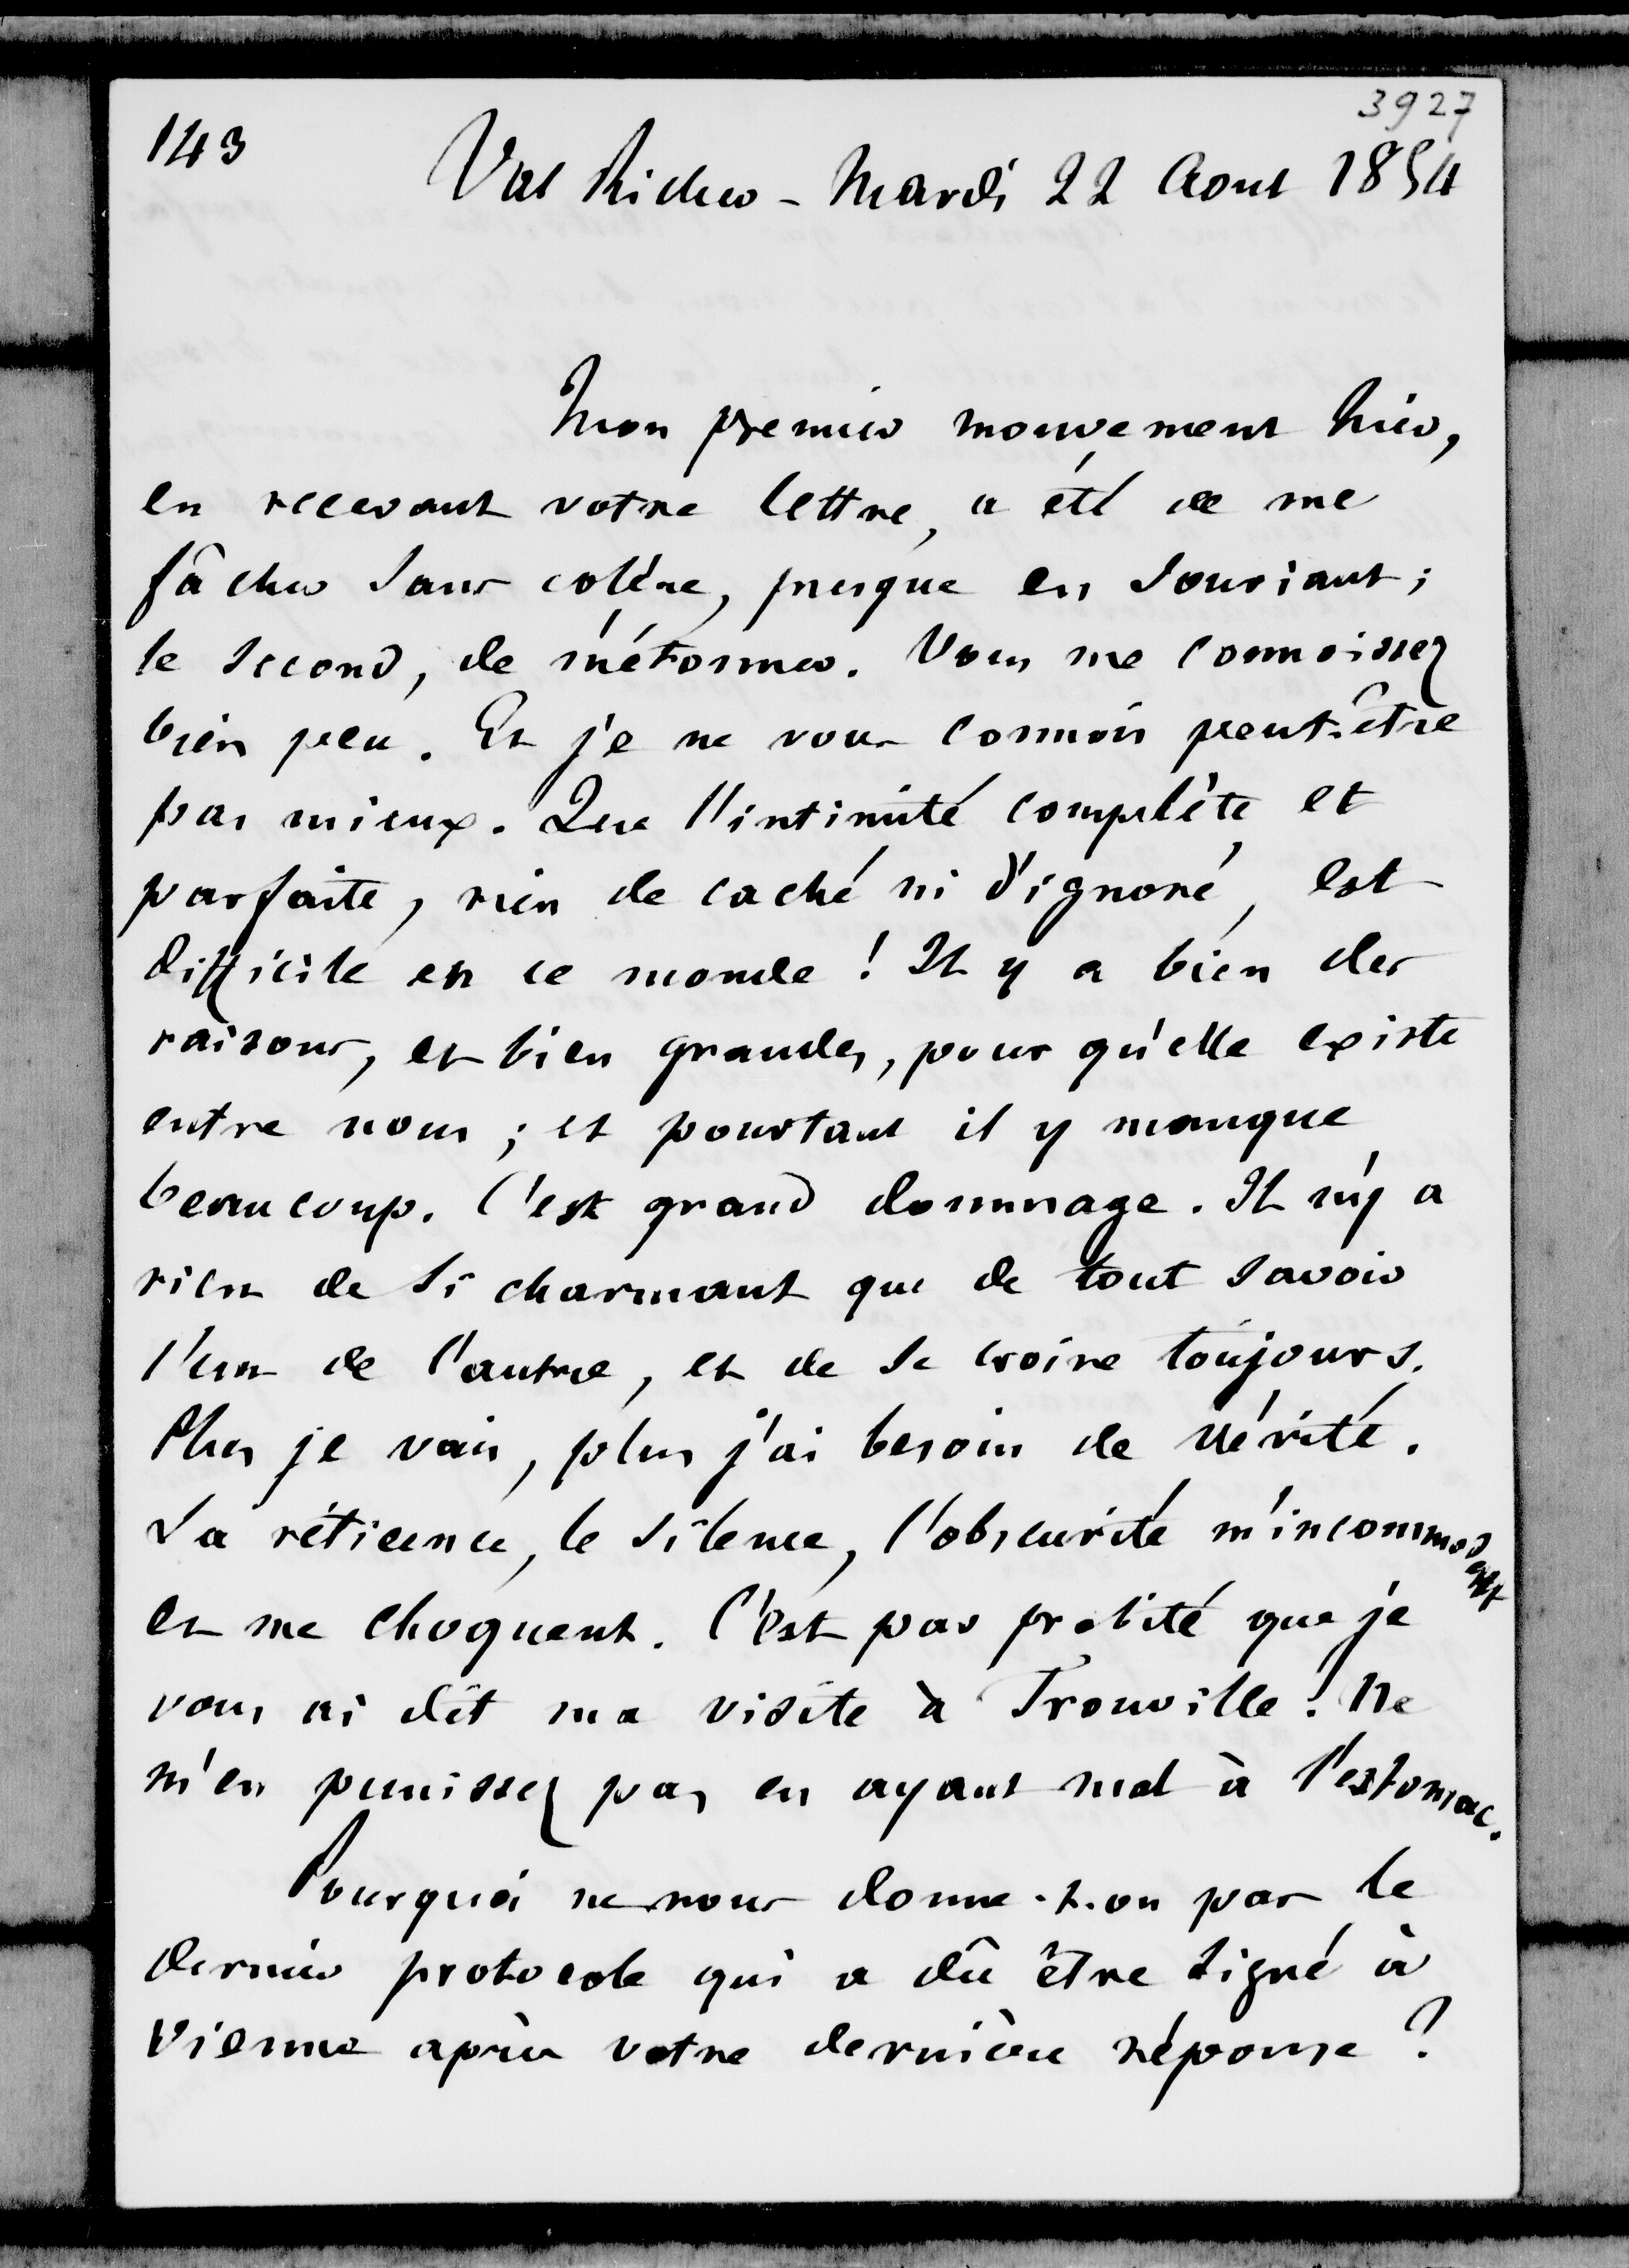 3927
143
Val Richer - Mardi 22 Aout 1854
Mon premier mouvement hier,
en recevant votre lettre, a été de me
fâcher sans colère, presque en souriant ;
le second, de m'étonner. Vous me connoissez
bien peu. Et je ne vous connois peut-être
pas mieux. Que l'intimité complète et
parfaite, rien de caché ni d'ignoré, est
difficile en ce monde ! Il y a bien des
raisons, et bien grandes, pour qu'elle existe
entre nous ; et pourtant il y manque
beaucoup. C'est grand dommage. Il n'y a
rien de si charmant que de tout savoir
l'un de l'autre, et de se croire toujours.
Plus je vais, plus j'ai besoin de vérité.
La réticence, le silence, l'obscurité m'incommodent
et me choquent. C'est par probité que je
vous ai dit ma visite à Trouville. Ne
m'en punissez pas en ayant mal à l'estomac.
Pourquoi ne nous donne-t-on pas le
dernier protocole qui a dû être signé à
Vienne après votre dernière réponse ?